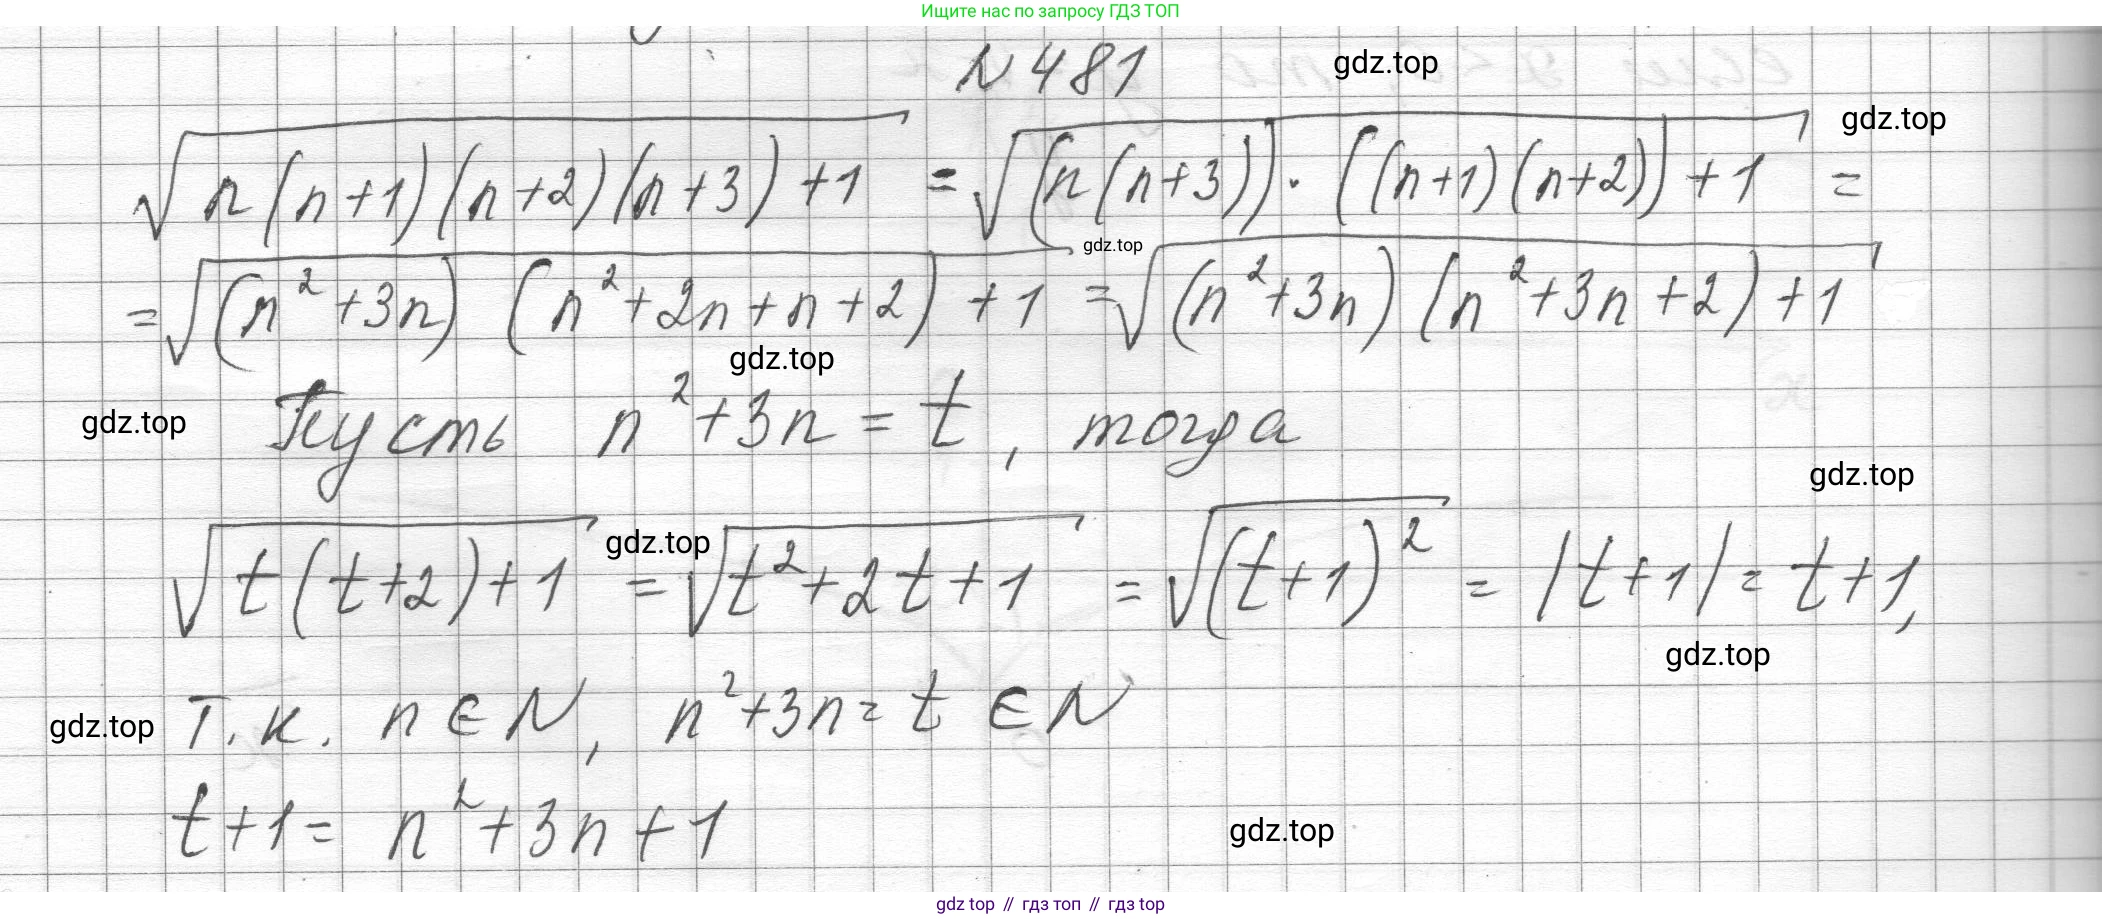 Ищите нас по запросу ГДЗ ТОП
N 481 gdz.top
√(n(n+1)(n+2)(n+3)+1) = √((n(n+3))·((n+1)(n+2))+1) = gdz.top
= √((n²+3n)(n²+2n+n+2)+1) gdz.top = √((n²+3n)(n²+3n+2)+1)
gdz.top
gdz.top Пусть n²+3n = t, тогда
gdz.top
√(t(t+2)+1) gdz.top = √(t²+2t+1) = √((t+1)²) = |t+1| = t+1,
gdz.top
gdz.top Т.к. n ∈ N, n²+3n = t ∈ N
t+1 = n²+3n+1 gdz.top
gdz top // гдз топ // гдз top